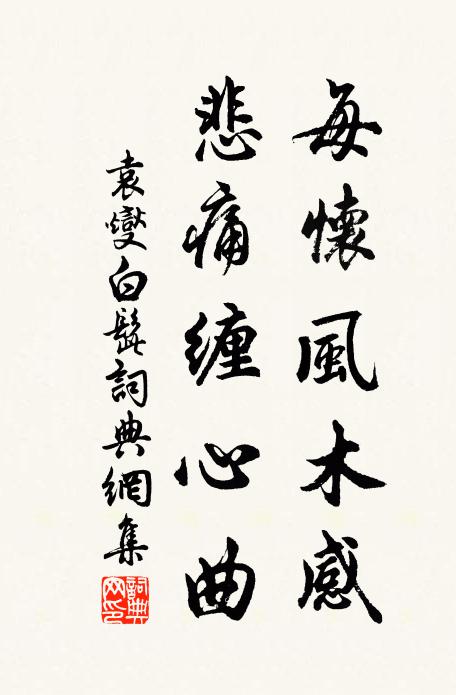 每懷風木感
悲痛纏心曲
袁燮白髭詞典網集
詞典網印